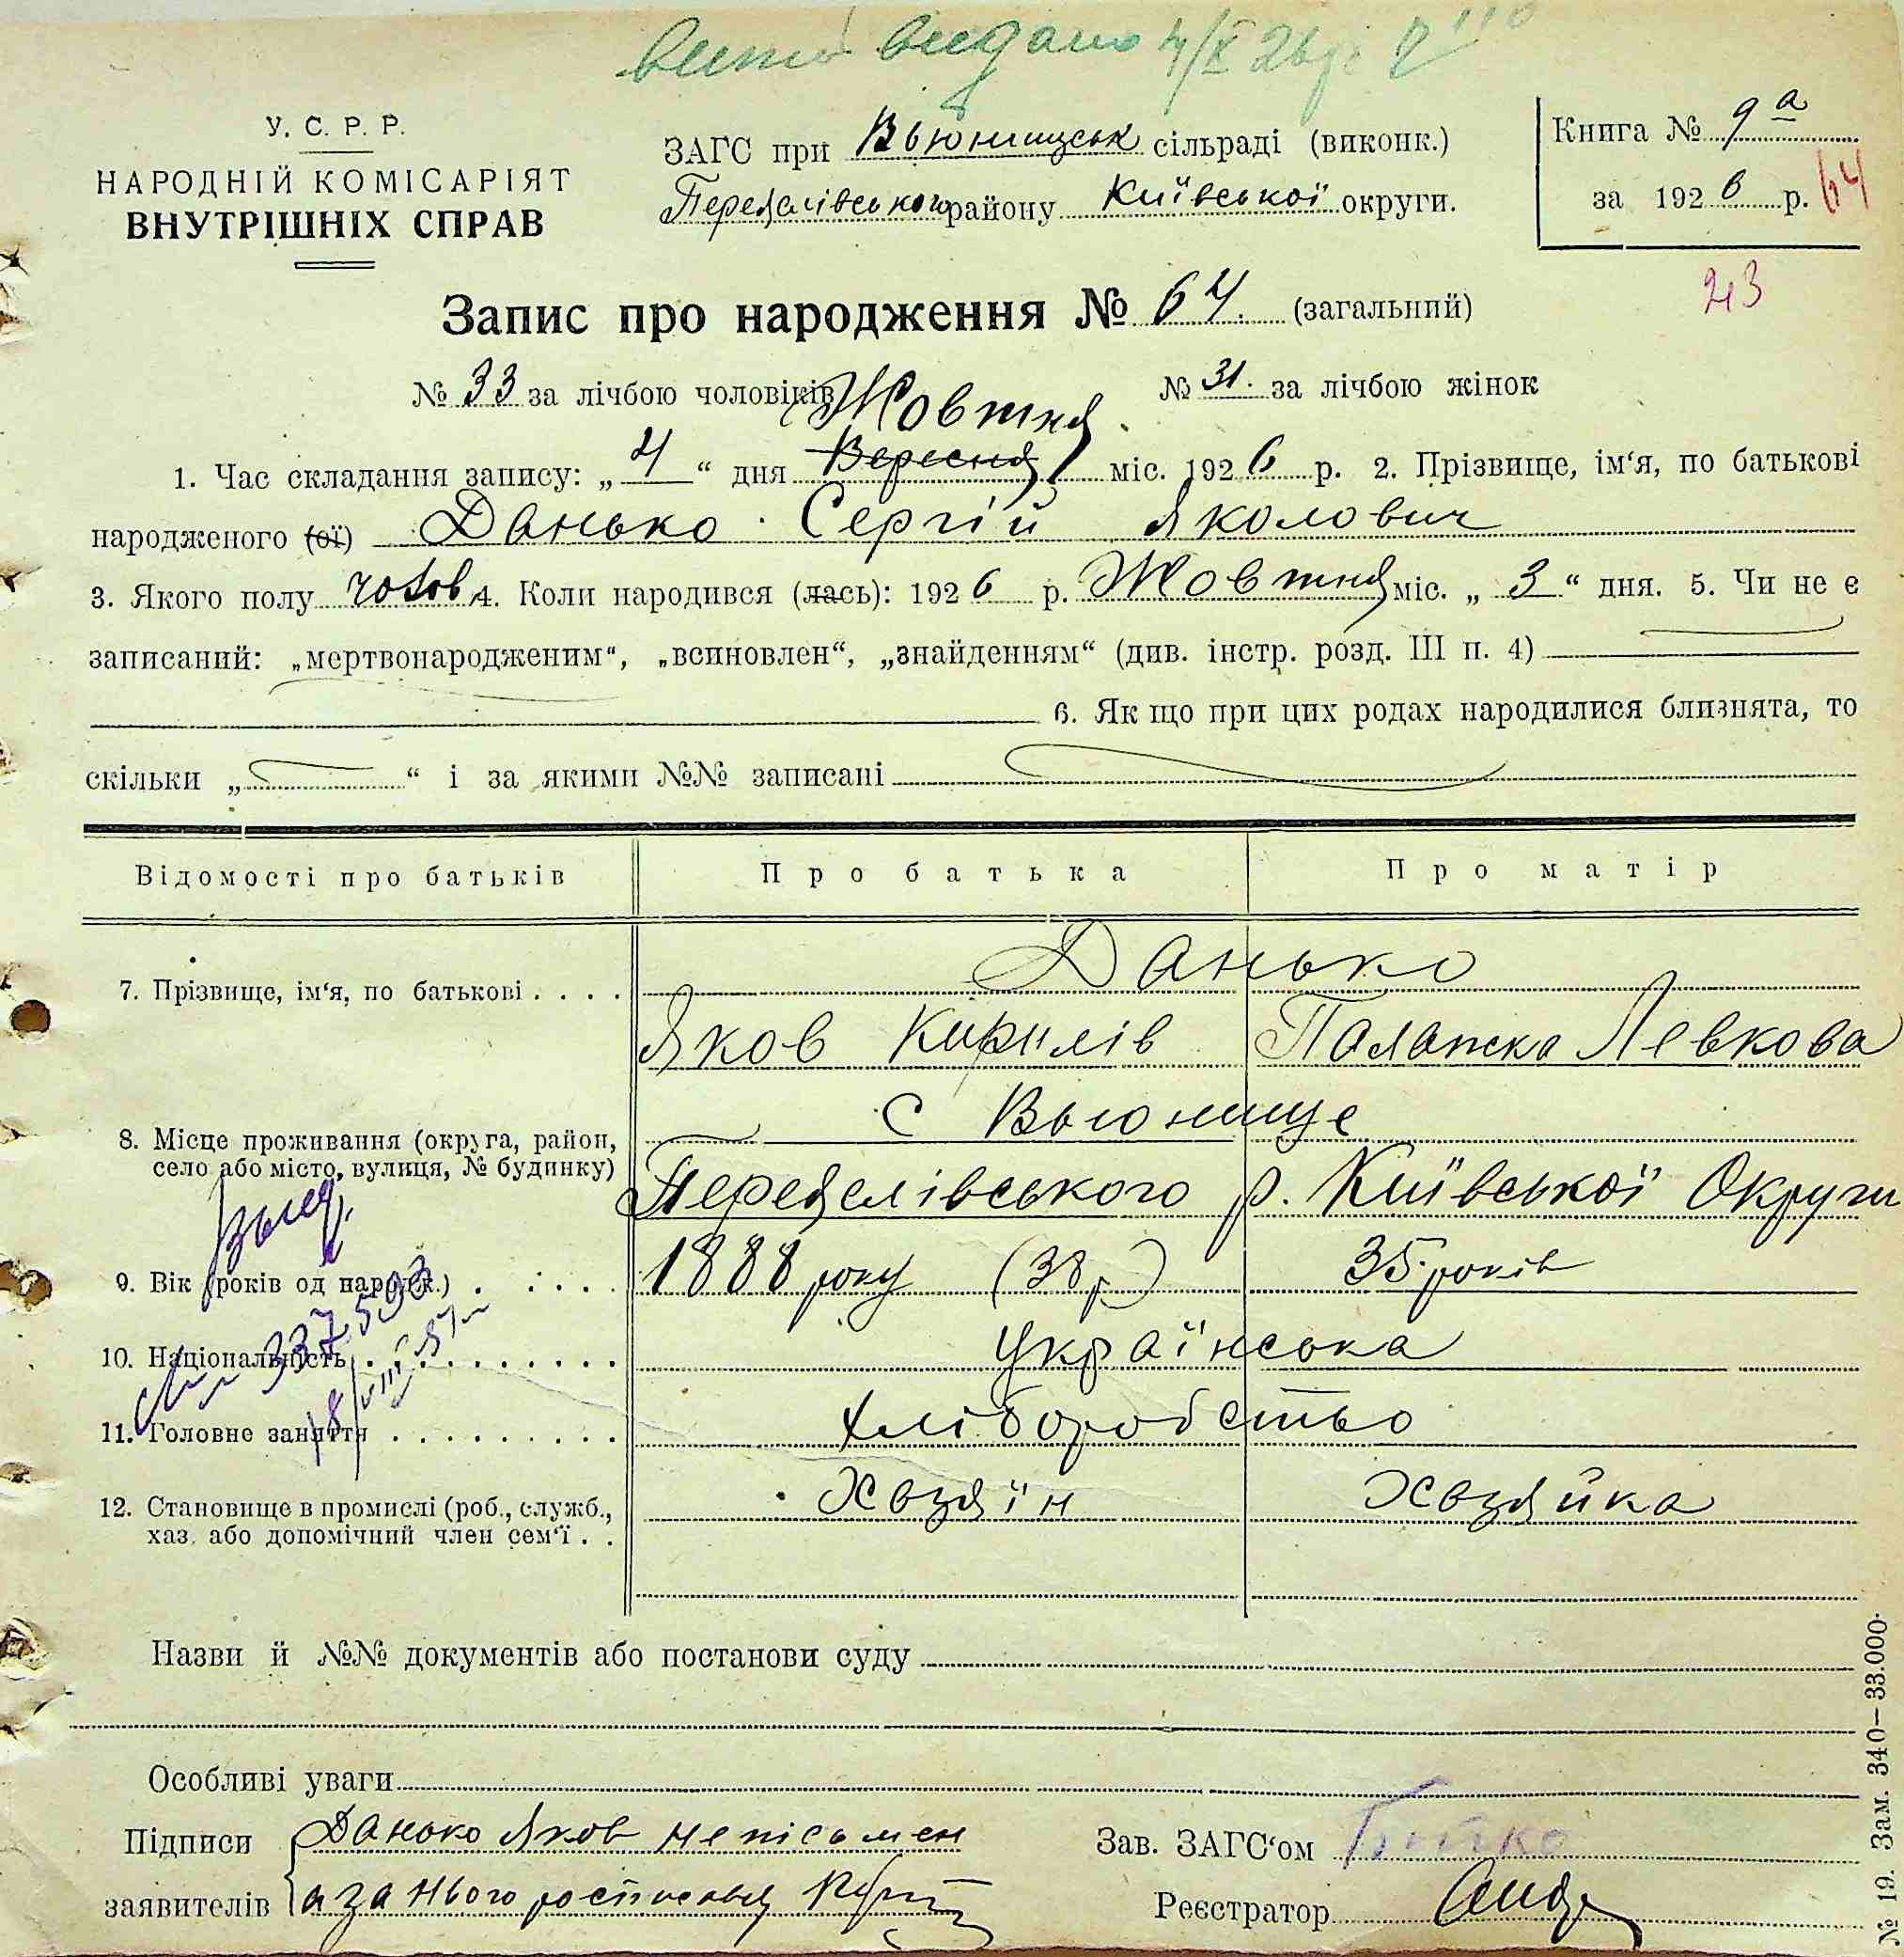 видано 4/X 26р.
У. С. Р. Р.
НАРОДНІЙ КОМІСАРІЯТ
ВНУТРІШНІХ СПРАВ
ЗАГС при Вьюнищськ сільраді (виконк.)
Переяслівського району Київської округи.
Книга № 9а
за 1926 р. 64
23
Запис про народження № 64. (загальний)
№ 33 за лічбою чоловіків № 31. за лічбою жінок
Жовтня.
1. Час складання запису: „4“ дня Вересня міс. 1926 р. 2. Прізвище, ім‘я, по батькові
народженого (ої) Данько Сергій Яколович
3. Якого полу чолов. 4. Коли народився (лась): 1926 р. Жовтня міс. „3“ дня. 5. Чи не є
записаний: „мертвонародженим“, „всиновлен“, „знайденням“ (див. інстр. розд. III п. 4)
6. Як що при цих родах народилися близнята, то
скільки „ “ і за якими №№ записані
Відомості про батьків Про батька Про матір
Данько
7. Прізвище, ім‘я, по батькові . . . .
Яков Кирилів Палажка Левкова
с Вьюнище
8. Місце проживання (округа, район,
село або місто, вулиця, № будинку)
Переяслівського р. Київської Округи
9. Вік (років од народж.) . . . . . 1888 року (38 р.) 35 років
10. Національність . . . . . . . . . . Українська
11. Головне заняття . . . . . . . . . Хліборобство
12. Становище в промислі (роб., служб.,
хаз. або допомічний член сем‘ї . .
Хазяїн Хазяйка
337593
18/VIII 57
Назви й №№ документів або постанови суду
Особливі уваги
Підписи
заявителів
Данько Яков непісьмен
а за нього
Зав. ЗАГС‘ом Бойко
Реєстратор
№ 19. Зам. 340—33.000.